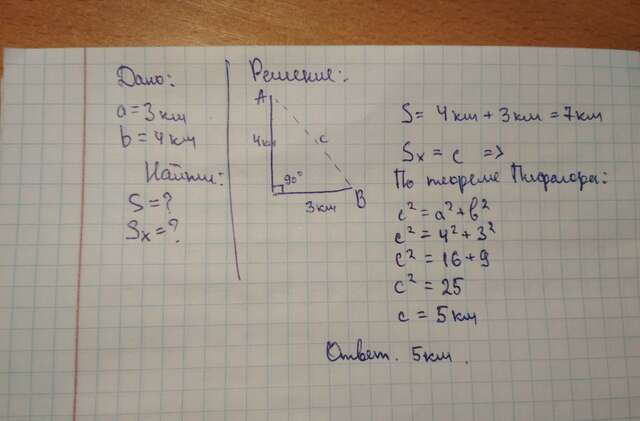 Дано:
a = 3 км
b = 4 км
Найти:
S = ?
Sx = ?
Решение:
A
4км
c
90°
B
3 км
S = 4 км + 3 км = 7 км
Sx = c =>
По теореме Пифагора:
c² = a² + b²
c² = 4² + 3²
c² = 16 + 9
c² = 25
c = 5 км
Ответ. 5 км.